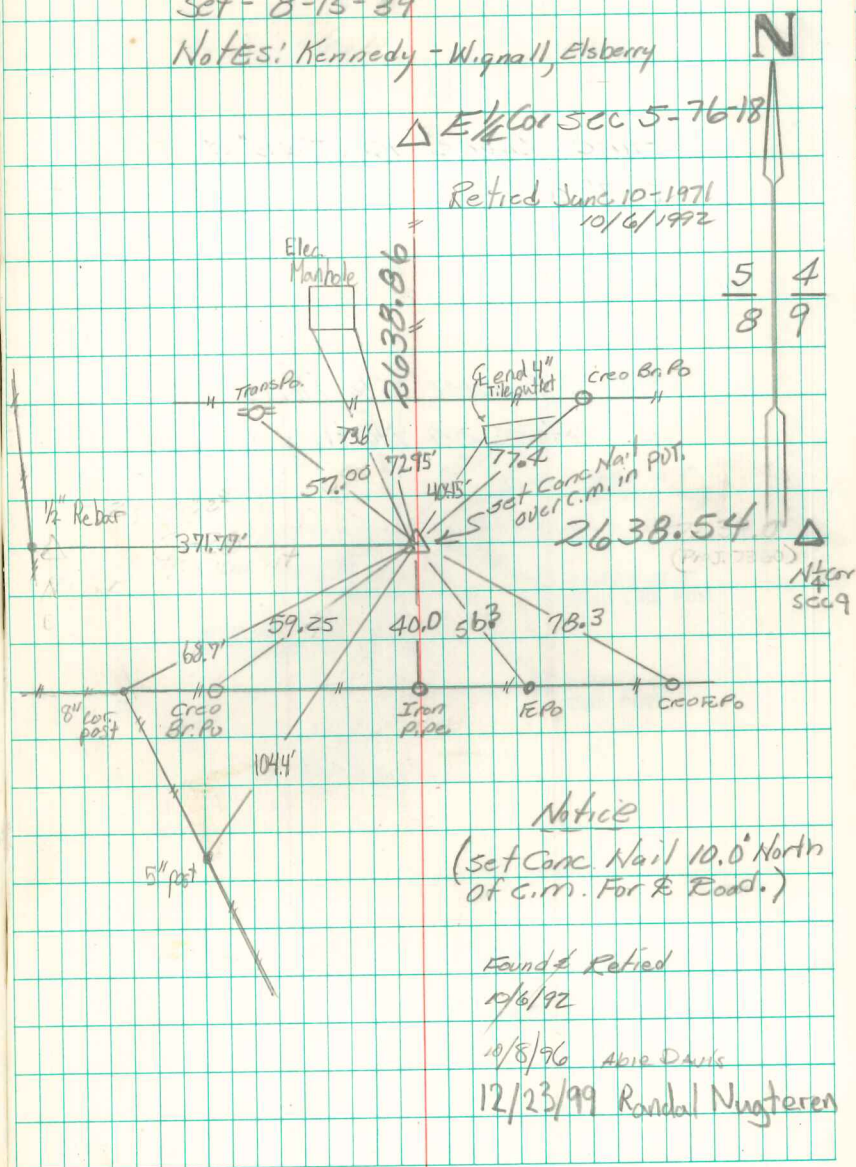 Set - 8-15-39
Notes: Kennedy - Wignall, Elsberry
N
△ E 1/4 Cor sec 5-76-18
Retied June 10-1971
10/6/1992
Elec.
Manhole
2638.86
5 4
8 9
Trans Po.
℄ end 4"
Tile outlet
Creo Br. Po
73.6'
72.95'
57.00
40.15'
77.4
set Conc. Nail in pvt.
over C.M.
1/2" Rebar
371.79'
2638.54 △
N 1/4 cor
sec 9
68.7'
59.25
40.0
56.3
78.3
8" cor.
post
Creo
Br. Po
Iron
Pipe
F.Po
Creo F.Po
104.4'
5" post
Notice
(set Conc. Nail 10.0' North
of C.M. For ℄ Road.)
Found & Retied
10/6/92
10/8/96 Abie Davis
12/23/99 Randal Nugteren